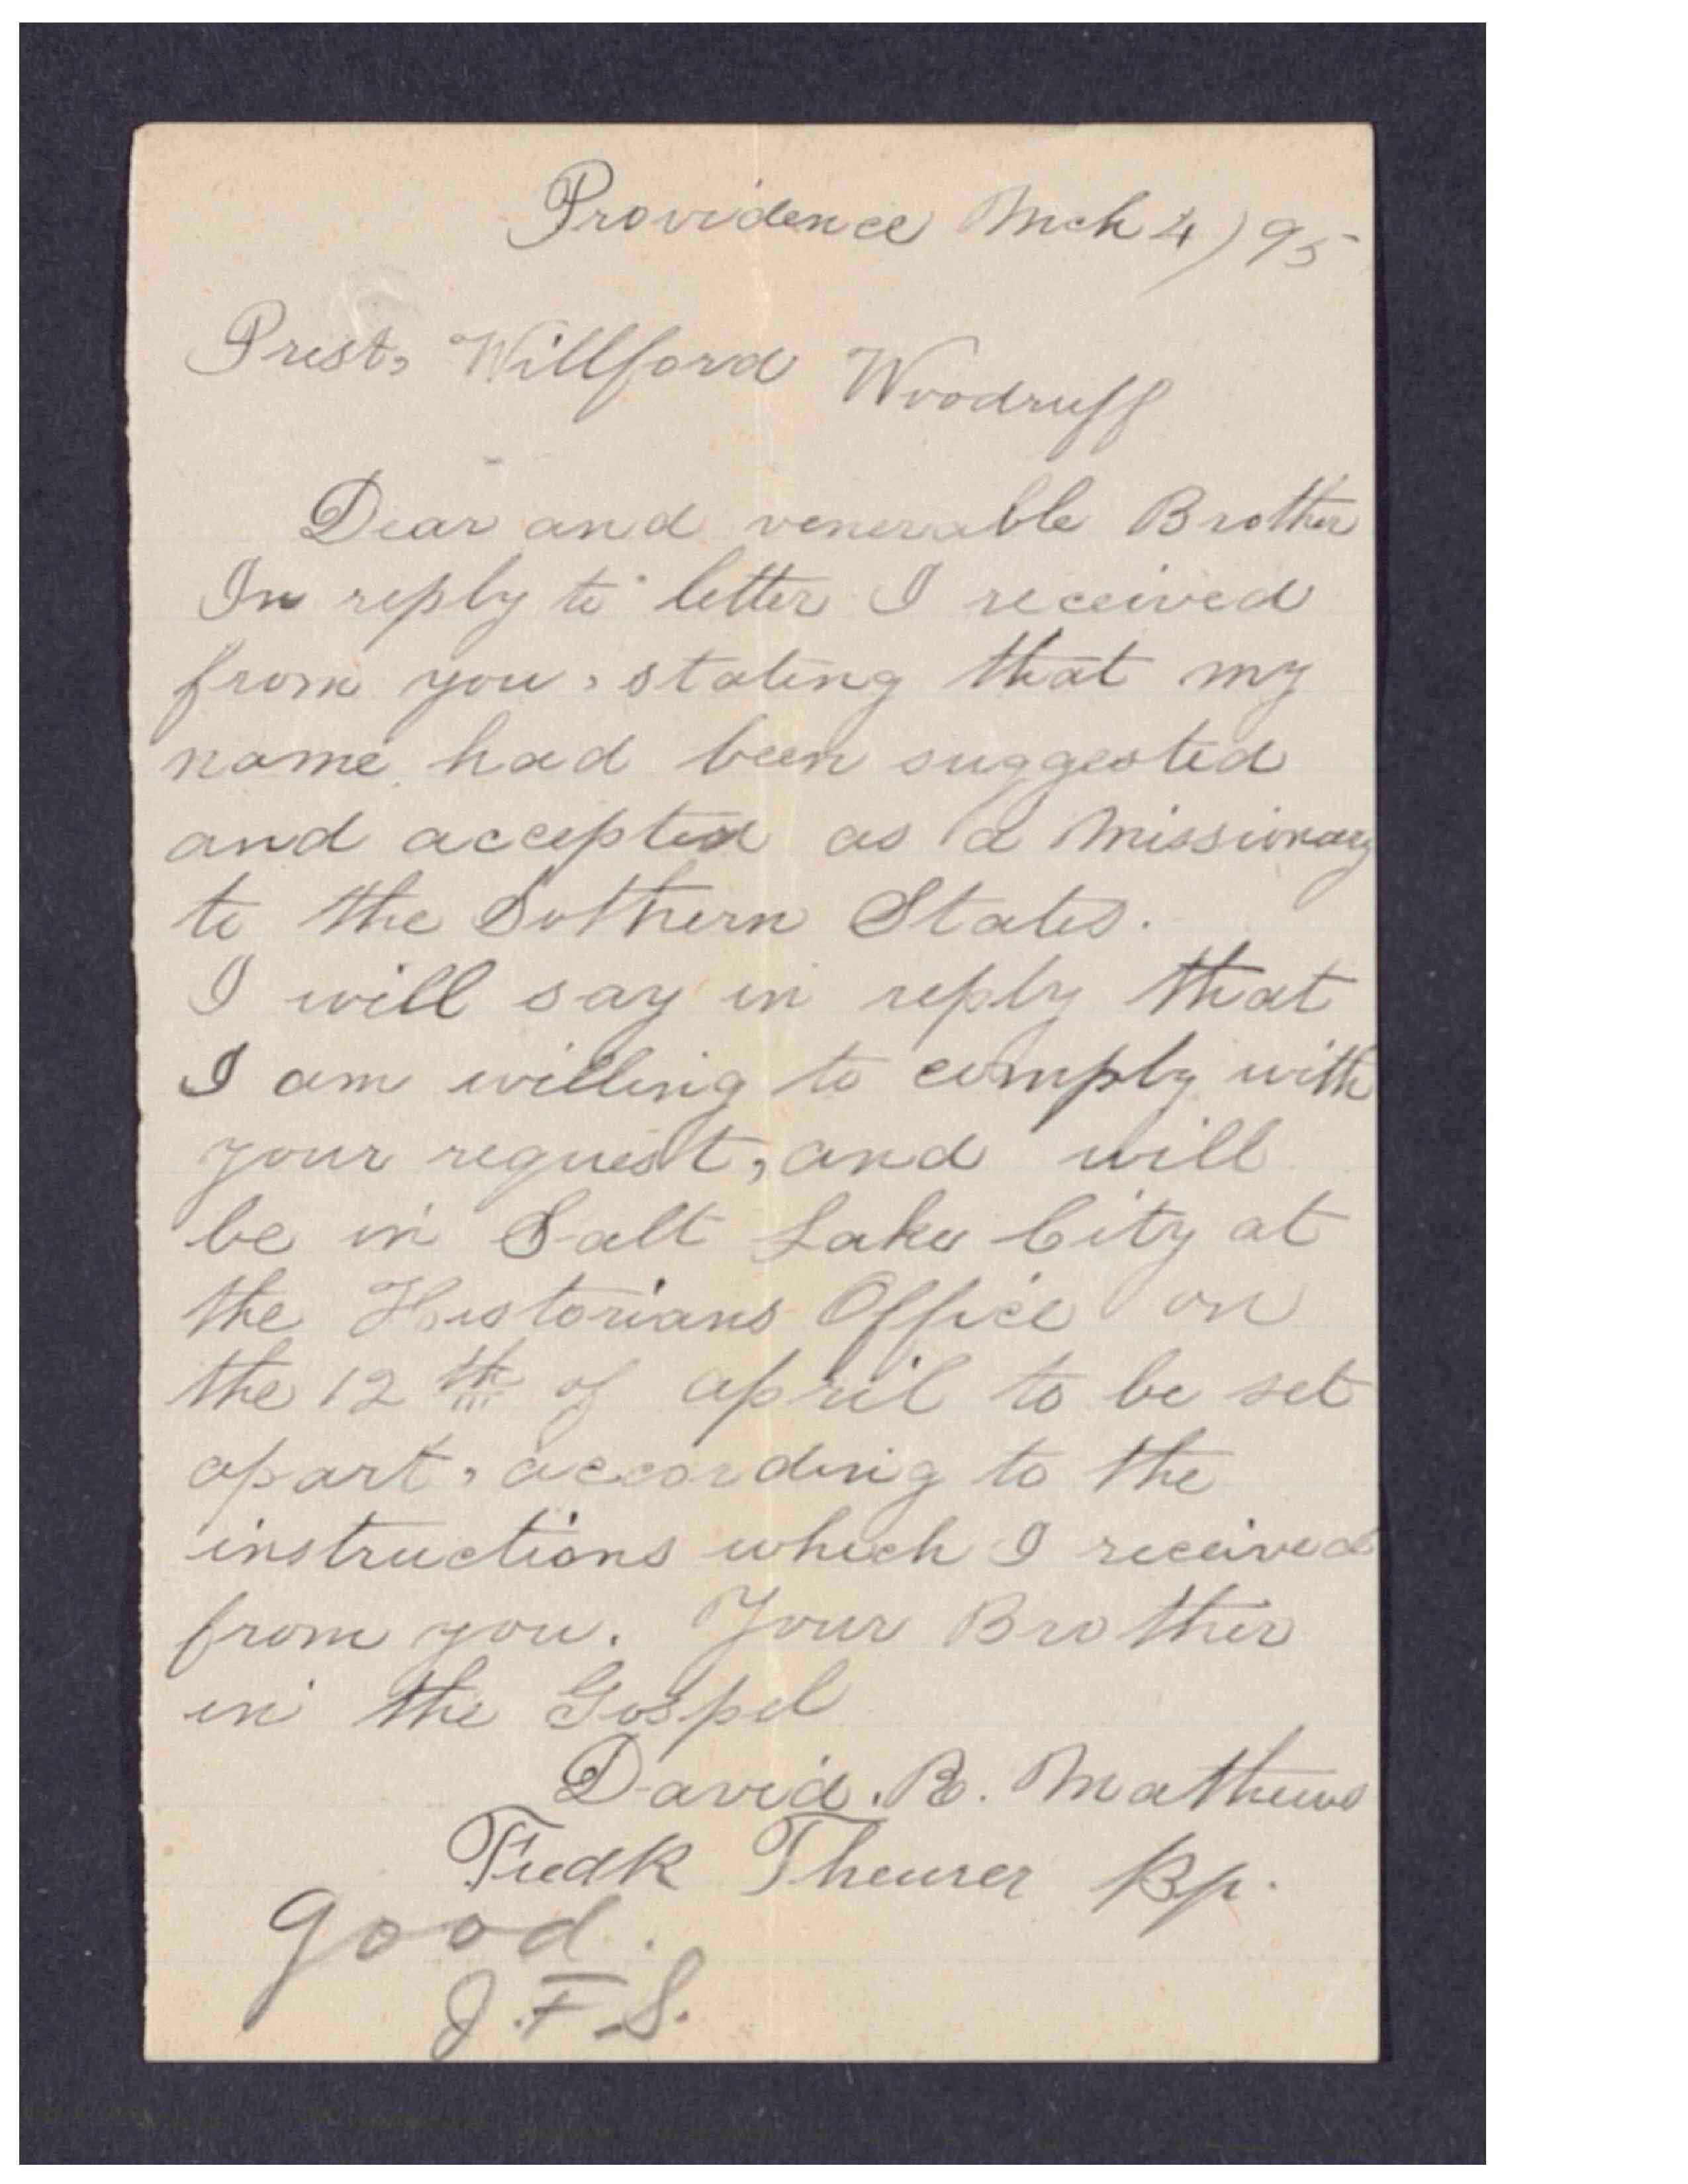 Providence Mch 4) 95
Prest, Willford Woodruff
Dear and venerable Brother
In reply to letter I received
from you, stating that my
name had been suggested
and accepted as a Missionary
to the Sothern States.
I will say in reply that
I am willing to comply with
your request, and will
be in Salt Lake City at
the Historians Office on
the 12th of april to be set
apart, according to the
instructions which I received
from you. Your Brother
in the Gospel
David. B. Mathews
Fredk Theurer Bp.
good.
J. F. S.